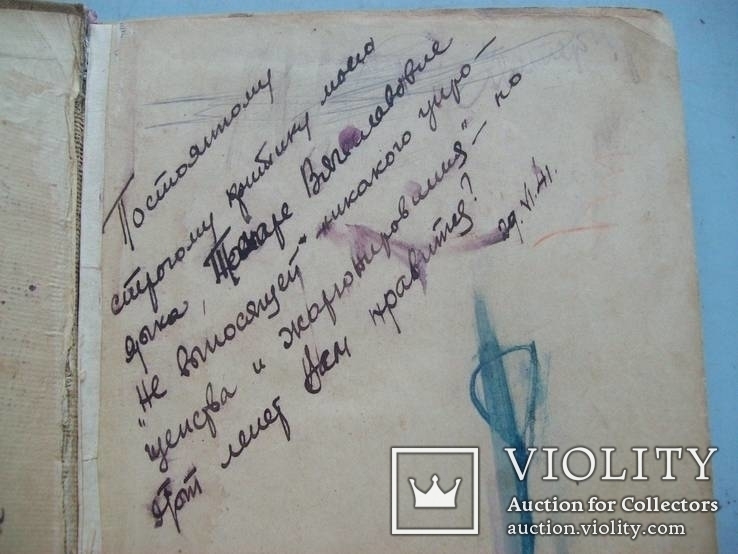 Постоянному
строгому критику моего
языка, Тамаре Вячеславовне
"Не выносящей "никакого упро-
щенства и жаргонирования" – но
этот лепет Вам нравится?
29.VI.41.
VIOLITY
Auction for Collectors
auction.violity.com